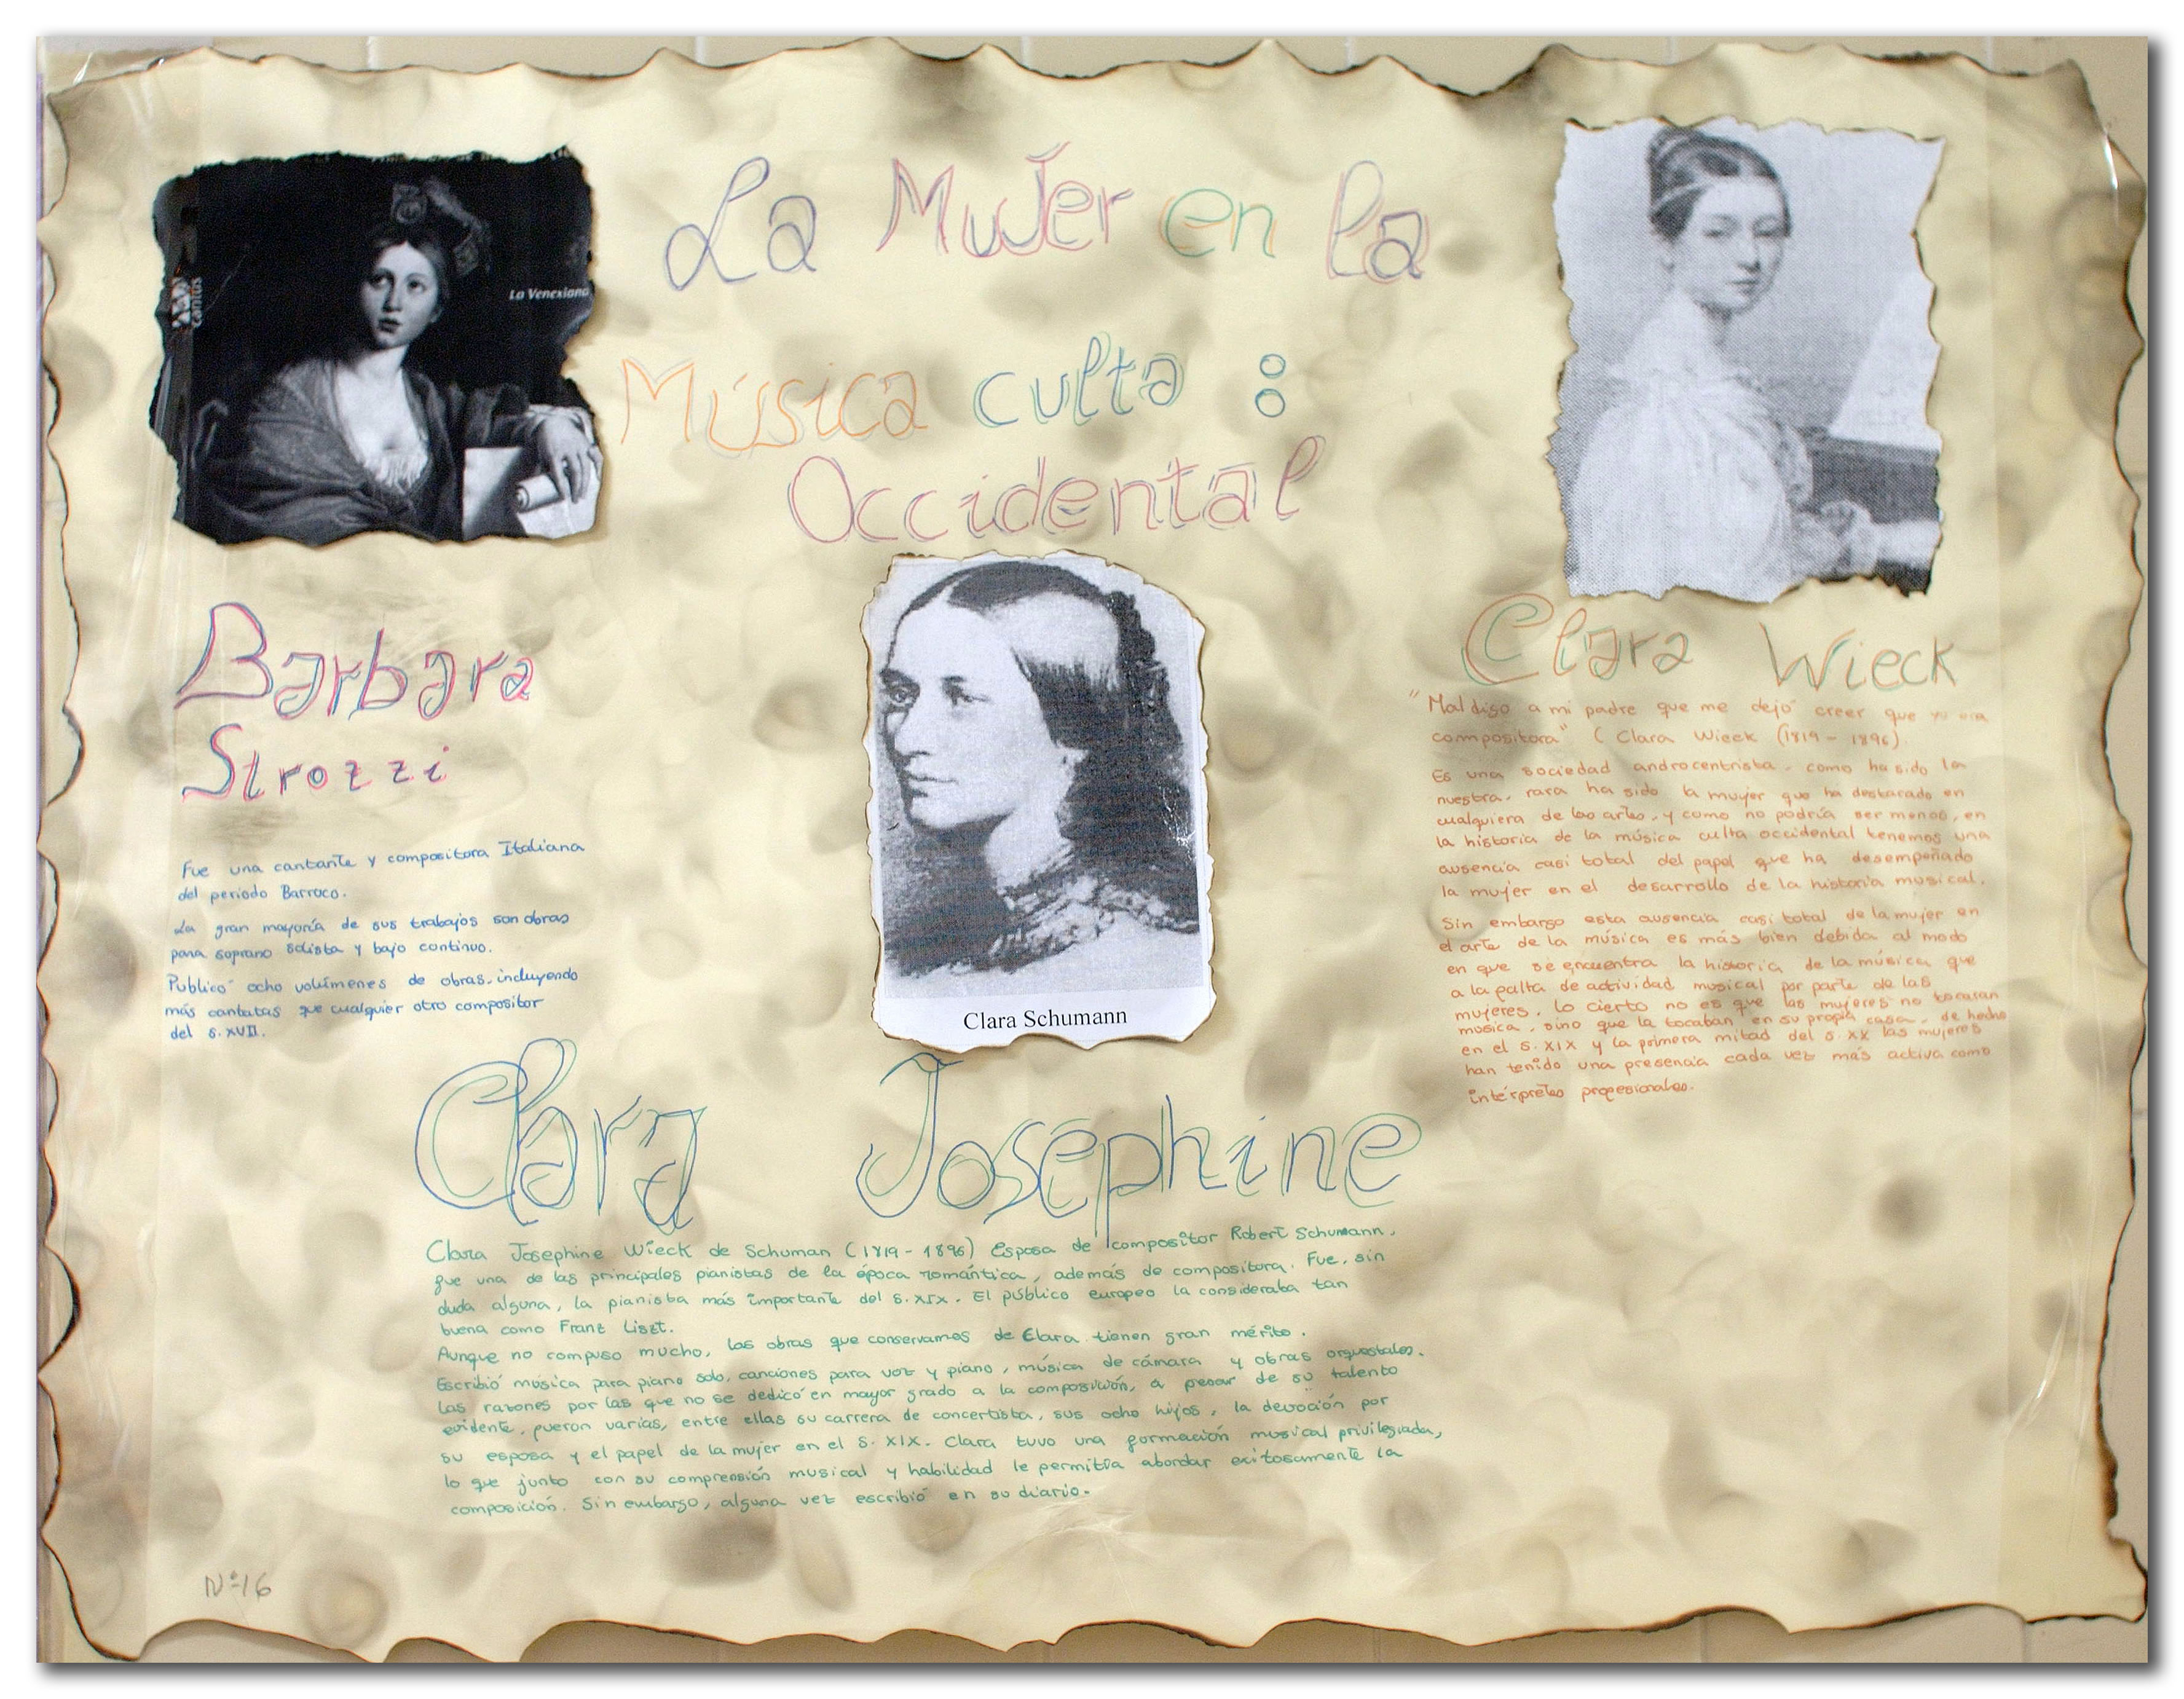 La Mujer en la
Música culta :
Occidental
cantus
La Venexiana
Barbara
Strozzi
Fue una cantante y compositora Italiana
del periodo Barroco.
La gran mayoría de sus trabajos son obras
para soprano solista y bajo continuo.
Publicó ocho volúmenes de obras, incluyendo
más cantatas que cualquier otro compositor
del s. XVII.
Clara Schumann
Clara Wieck
"Maldigo a mi padre que me dejó creer que yo era
compositora" ( Clara Wieck (1819 - 1896).
Es una sociedad androcentrista, como ha sido la
nuestra, rara ha sido la mujer que ha destacado en
cualquiera de las artes, y como no podría ser menos, en
la historia de la música culta occidental tenemos una
ausencia casi total del papel que ha desempeñado
la mujer en el desarrollo de la historia musical.
Sin embargo esta ausencia casi total de la mujer en
el arte de la música es más bien debida al modo
en que se encuentra la historia de la música que
a la falta de actividad musical por parte de las
mujeres. Lo cierto no es que las mujeres no tocaran
musica, sino que la tocaban en su propia casa, de hecho
en el s. XIX y la primera mitad del s. XX las mujeres
han tenido una presencia cada vez más activa como
intérpretes profesionales.
Clara Josephine
Clara Josephine Wieck de Schuman (1819 - 1896) Esposa de compositor Robert Schumann,
fue una de las principales pianistas de la época romántica, además de compositora. Fue, sin
duda alguna, la pianista más importante del s. XIX. El público europeo la consideraba tan
buena como Franz Liszt.
Aunque no compuso mucho, las obras que conservamos de Clara tienen gran mérito.
Escribió música para piano solo, canciones para voz y piano, música de cámara y obras orquestales.
Las razones por las que no se dedicó en mayor grado a la composición, a pesar de su talento
evidente, fueron varias, entre ellas su carrera de concertista, sus ocho hijos, la devoción por
su esposo y el papel de la mujer en el s. XIX. Clara tuvo una formación musical privilegiada,
lo que junto con su comprensión musical y habilidad le permitía abordar exitosamente la
composición. Sin embargo, alguna vez escribió en su diario.
Nº 16